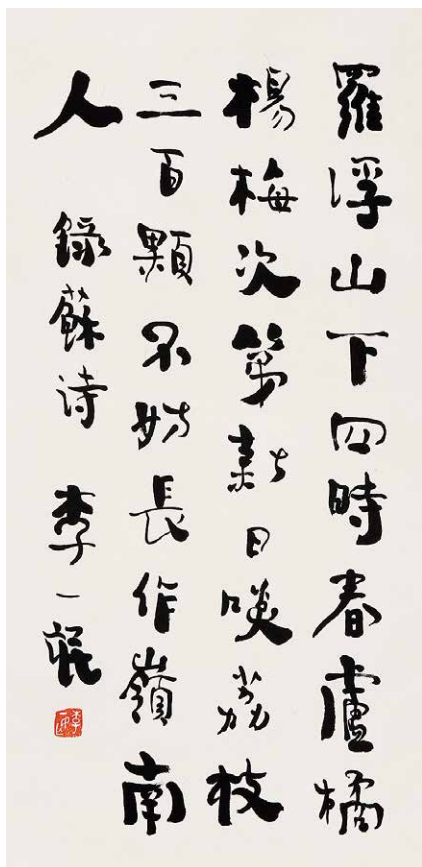 羅浮山下四時春盧橘
楊梅次第新日啖荔枝
三百顆不妨長作嶺南
人
錄蘇詩 李一氓